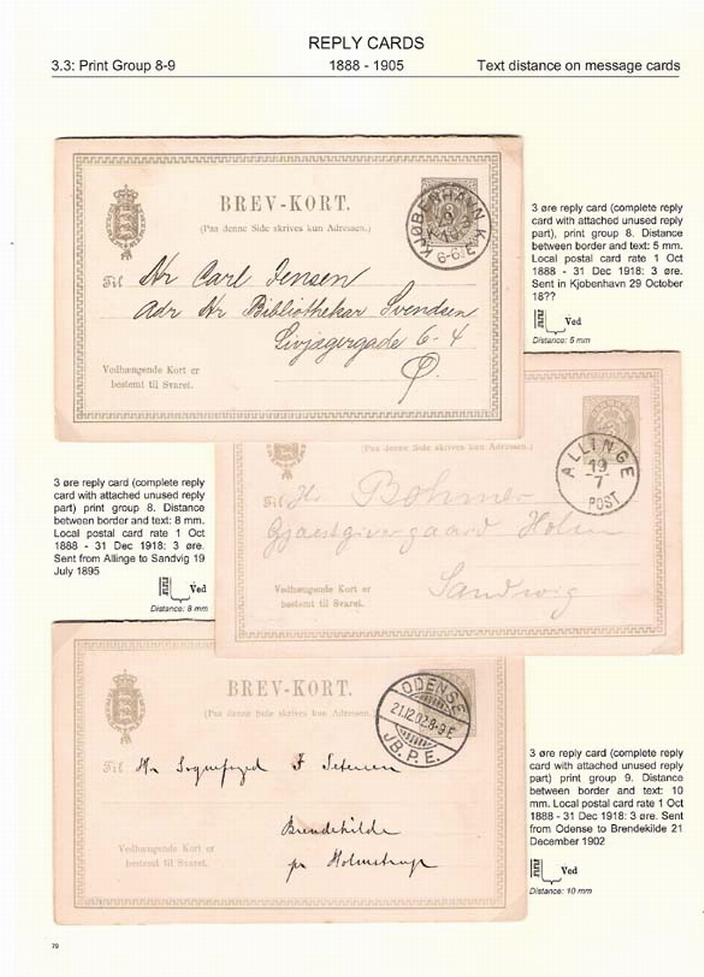 REPLY CARDS
3.3: Print Group 8-9
1888 - 1905
Text distance on message cards
BREV-KORT.
(Paa denne Side skrives kun Adressen.)
KJØBENHAVN K.
6-6
Til Hr Carl Jensen
Adr Hr Bibliothekar Svendsen
Livjægergade 6-4
Ø.
Vedhængende Kort er
bestemt til Svaret.
3 øre reply card (complete reply
card with attached unused reply
part), print group 8. Distance
between border and text: 5 mm.
Local postal card rate 1 Oct
1888 - 31 Dec 1918: 3 øre.
Sent in Kjobenhavn 29 October
18??
Ved
Distance: 5 mm
(Paa denne Side skrives kun Adressen.)
ALLINGE
19
7
POST
Til Hr Bohmer
Gjæstgivergaard Holm
Sandwig
Vedhængende Kort er
bestemt til Svaret.
3 øre reply card (complete reply
card with attached unused reply
part) print group 8. Distance
between border and text: 8 mm.
Local postal card rate 1 Oct
1888 - 31 Dec 1918: 3 øre.
Sent from Allinge to Sandvig 19
July 1895
Ved
Distance: 8 mm
BREV-KORT.
(Paa denne Side skrives kun Adressen.)
ODENSE
21.12.02.8-9 E
JB.P.E.
Til Hr Sognefoged F Petersen
Brendekilde
pr Holmstrup
Vedhængende Kort er
bestemt til Svaret.
3 øre reply card (complete reply
card with attached unused reply
part) print group 9. Distance
between border and text: 10
mm. Local postal card rate 1 Oct
1888 - 31 Dec 1918: 3 øre. Sent
from Odense to Brendekilde 21
December 1902
Ved
Distance: 10 mm
79